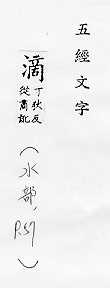 五經文字
滴
丁狄反
從啇訛
（水部，P.57）